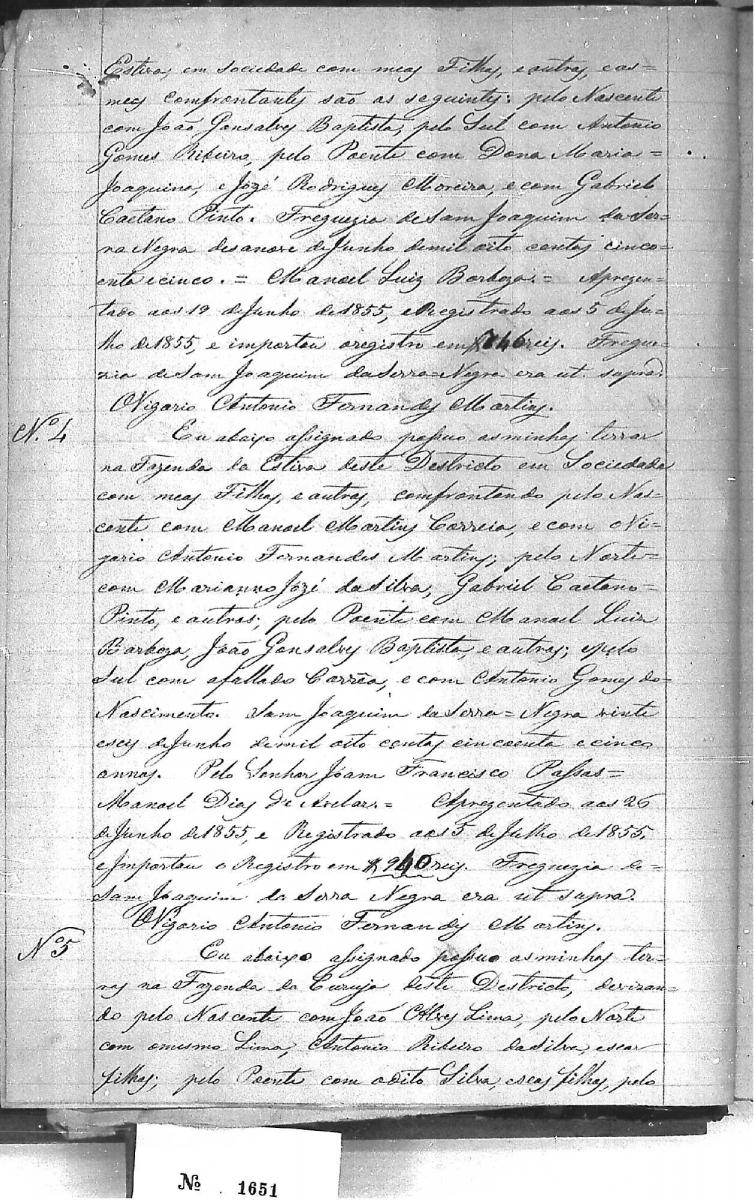 Estiva, em sociedade com meos Filhos, e outros, e os
meos comfrontantes são os seguintes: pelo Nascente
com João Gonsalves Baptista, pelo Sul com Antonio
Gomes Ribeiro, pelo Poente com Dona Maria=
Joaquina, e Jozé Rodrigues Moreira, e com Gabriel
Caetano Pinto. Freguezia de Sam Joaquim da Ser-
ra Negra desanove de Junho de mil oito centos cinco-
enta e cinco. = Manoel Luiz Barboza. = Aprezen-
tado aos 19 de Junho de 1855, e Registrado aos 5 de Ju-
lho de 1855, e importou o registro em $746 reis. Fregue-
zia de Sam Joaquim da Serra=Negra era ut supra.
O Vigario Antonio Fernandes Martins.
Nº 4
Eu abaixo assignado possuo as minhas terras
na Fazenda da Estiva deste Destricto em Sociedade
com meos Filhos, e outros, comfrontando pelo Nas-
cente com Manoel Martins Correia, e com o Vi-
gario Antonio Fernandes Martins; pelo Norte
com Marianno Jozé da Silva, Gabriel Caetano=
Pinto, e outros; pelo Poente com Manoel Luiz
Barboza, João Gonsalves Baptista, e outros; e pelo
Sul com o fallado Corrêa, e com Antonio Gomes do
Nascimento. Sam Joaquim da Serra=Negra vinte
e seis de Junho de mil oito centos cincoenta e cinco
annos. Pelo Senhor Joam Francisco Passos=
Manoel Dias de Avelar.= Aprezentado aos 26
de Junho de 1855, e Registrado aos 5 de Julho de 1855,
e Importou o Registro em $940 reis. Freguezia de
Sam Joaquim da Serra Negra era ut supra.
O Vigario Antonio Fernandes Martins.
Nº 5
Eu abaixo assignado possuo as minhas ter-
ras na Fazenda da Curuja deste Destricto, devizan-
do pelo Nascente com João Alves Lima, pelo Norte
com o mesmo Lima, Antonio Ribeiro da Silva, e seos
filhos; pelo Poente com o dito Silva, e seos filhos, pelo
Nº . 1651